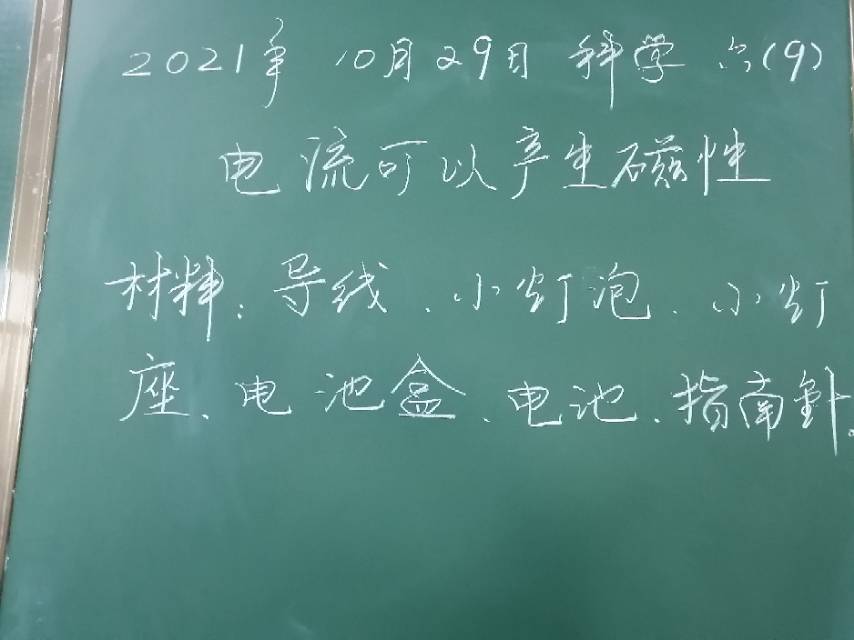 2021年 10月29日 科学 六(9)
电流可以产生磁性
材料：导线、小灯泡、小灯
座、电池盒、电池、指南針。